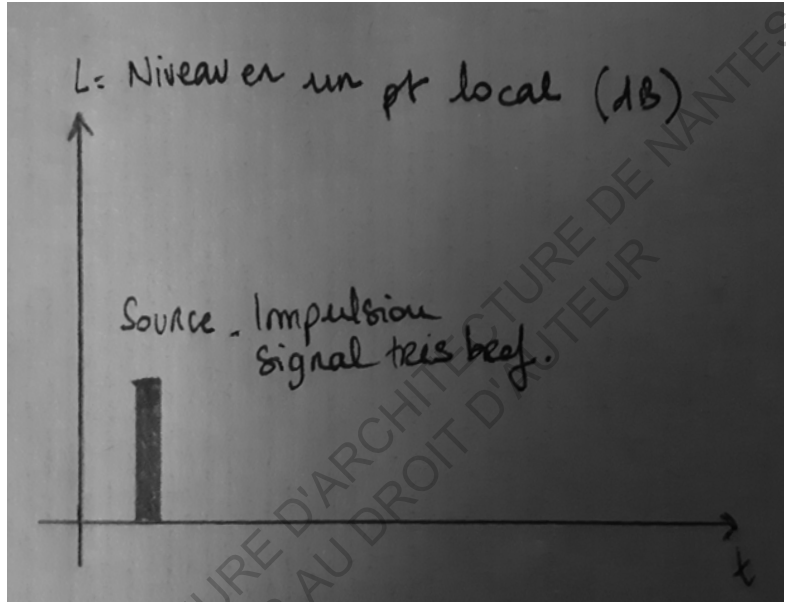 L= Niveau en un pt local (dB)
Source. Impulsion
signal très bref.
t
URE D'ARCHITECTURE DE NANTES
AU DROIT D'AUTEUR